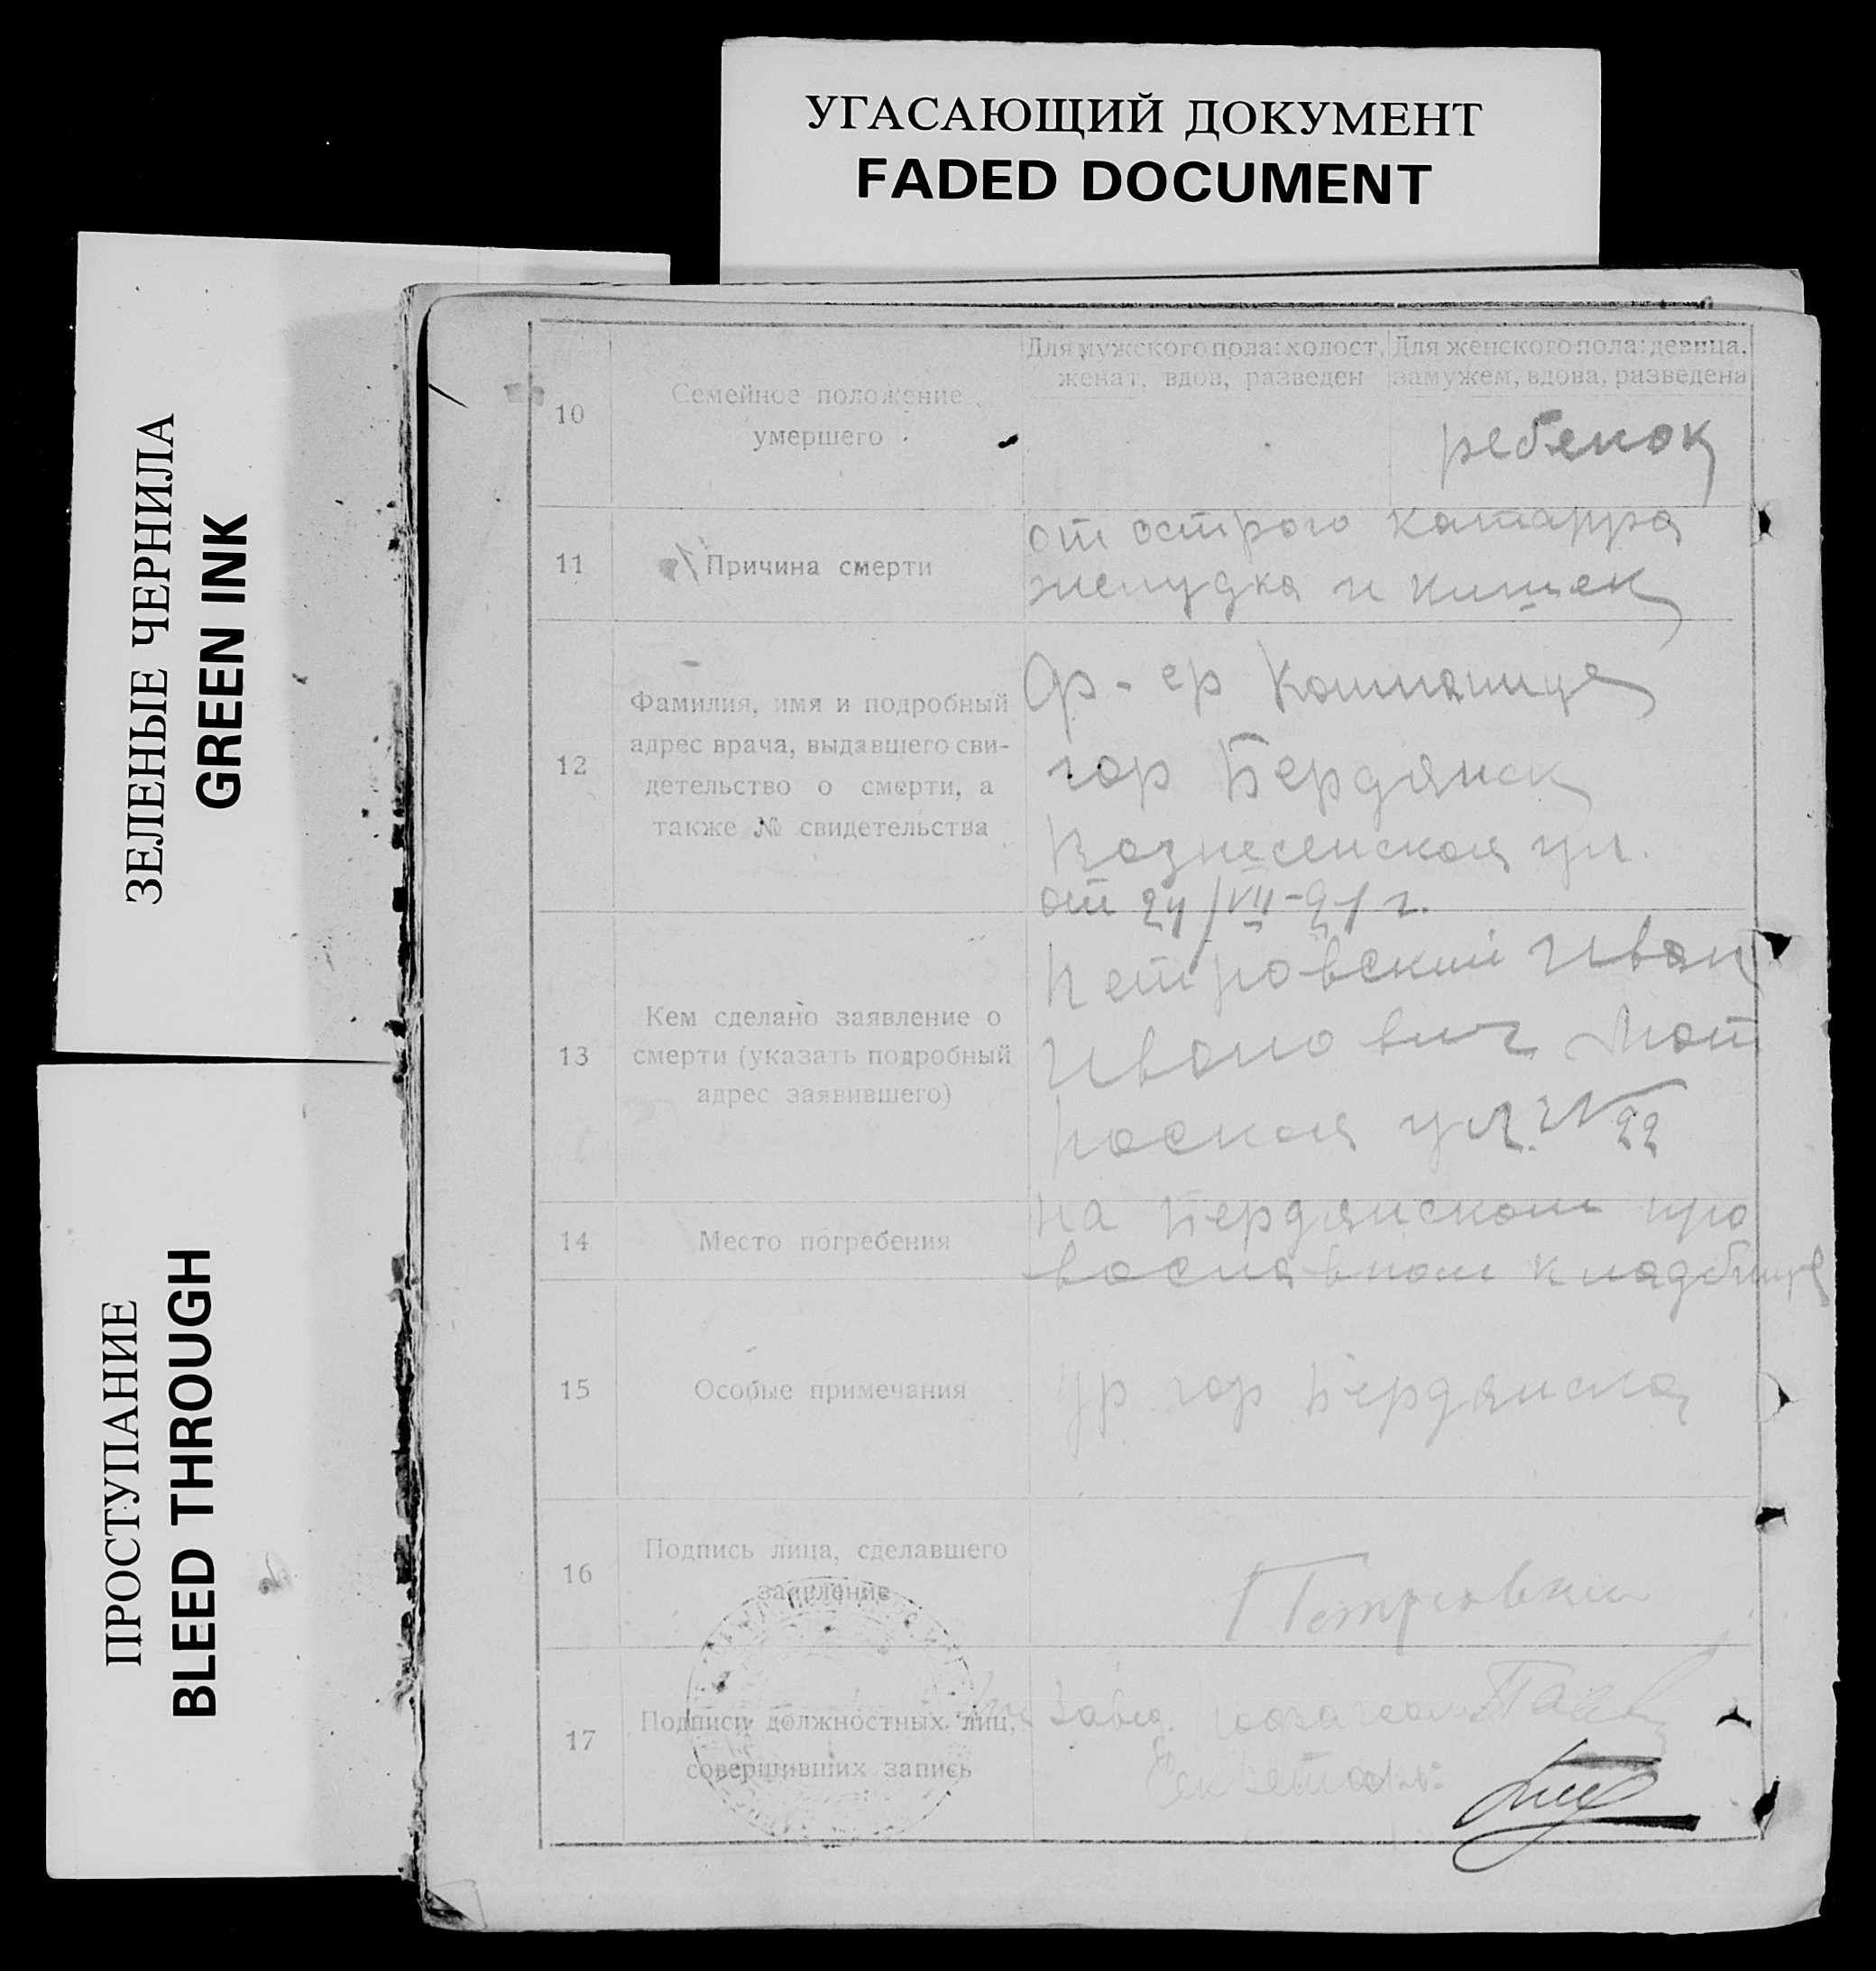 УГАСАЮЩИЙ ДОКУМЕНТ
FADED DOCUMENT
ЗЕЛЕНЫЕ ЧЕРНИЛА
GREEN INK
ПРОСТУПАНИЕ
BLEED THROUGH
10
Семейное положение
умершего
Для мужского пола: холост,
женат, вдов, разведен
Для женского пола: девица,
замужем, вдова, разведена
ребенок
11
Причина смерти
от острого катарра
желудка и кишек
12
Фамилия, имя и подробный
адрес врача, выдавшего сви-
детельство о смерти, а
также № свидетельства
гор Бердянск
Вознесенская ул.
от 24/VII-21 г.
13
Кем сделано заявление о
смерти (указать подробный
адрес заявившего)
Петровский Иван
Иванович Мат
роская ул. № 22
14
Место погребения
на Бердянском пра
вославном кладбище
15
Особые примечания
гор Бердянска
16
Подпись лица, сделавшего
заявление
Петровский
17
Подписи должностных лиц,
совершивших запись
Завед.
Секретарь